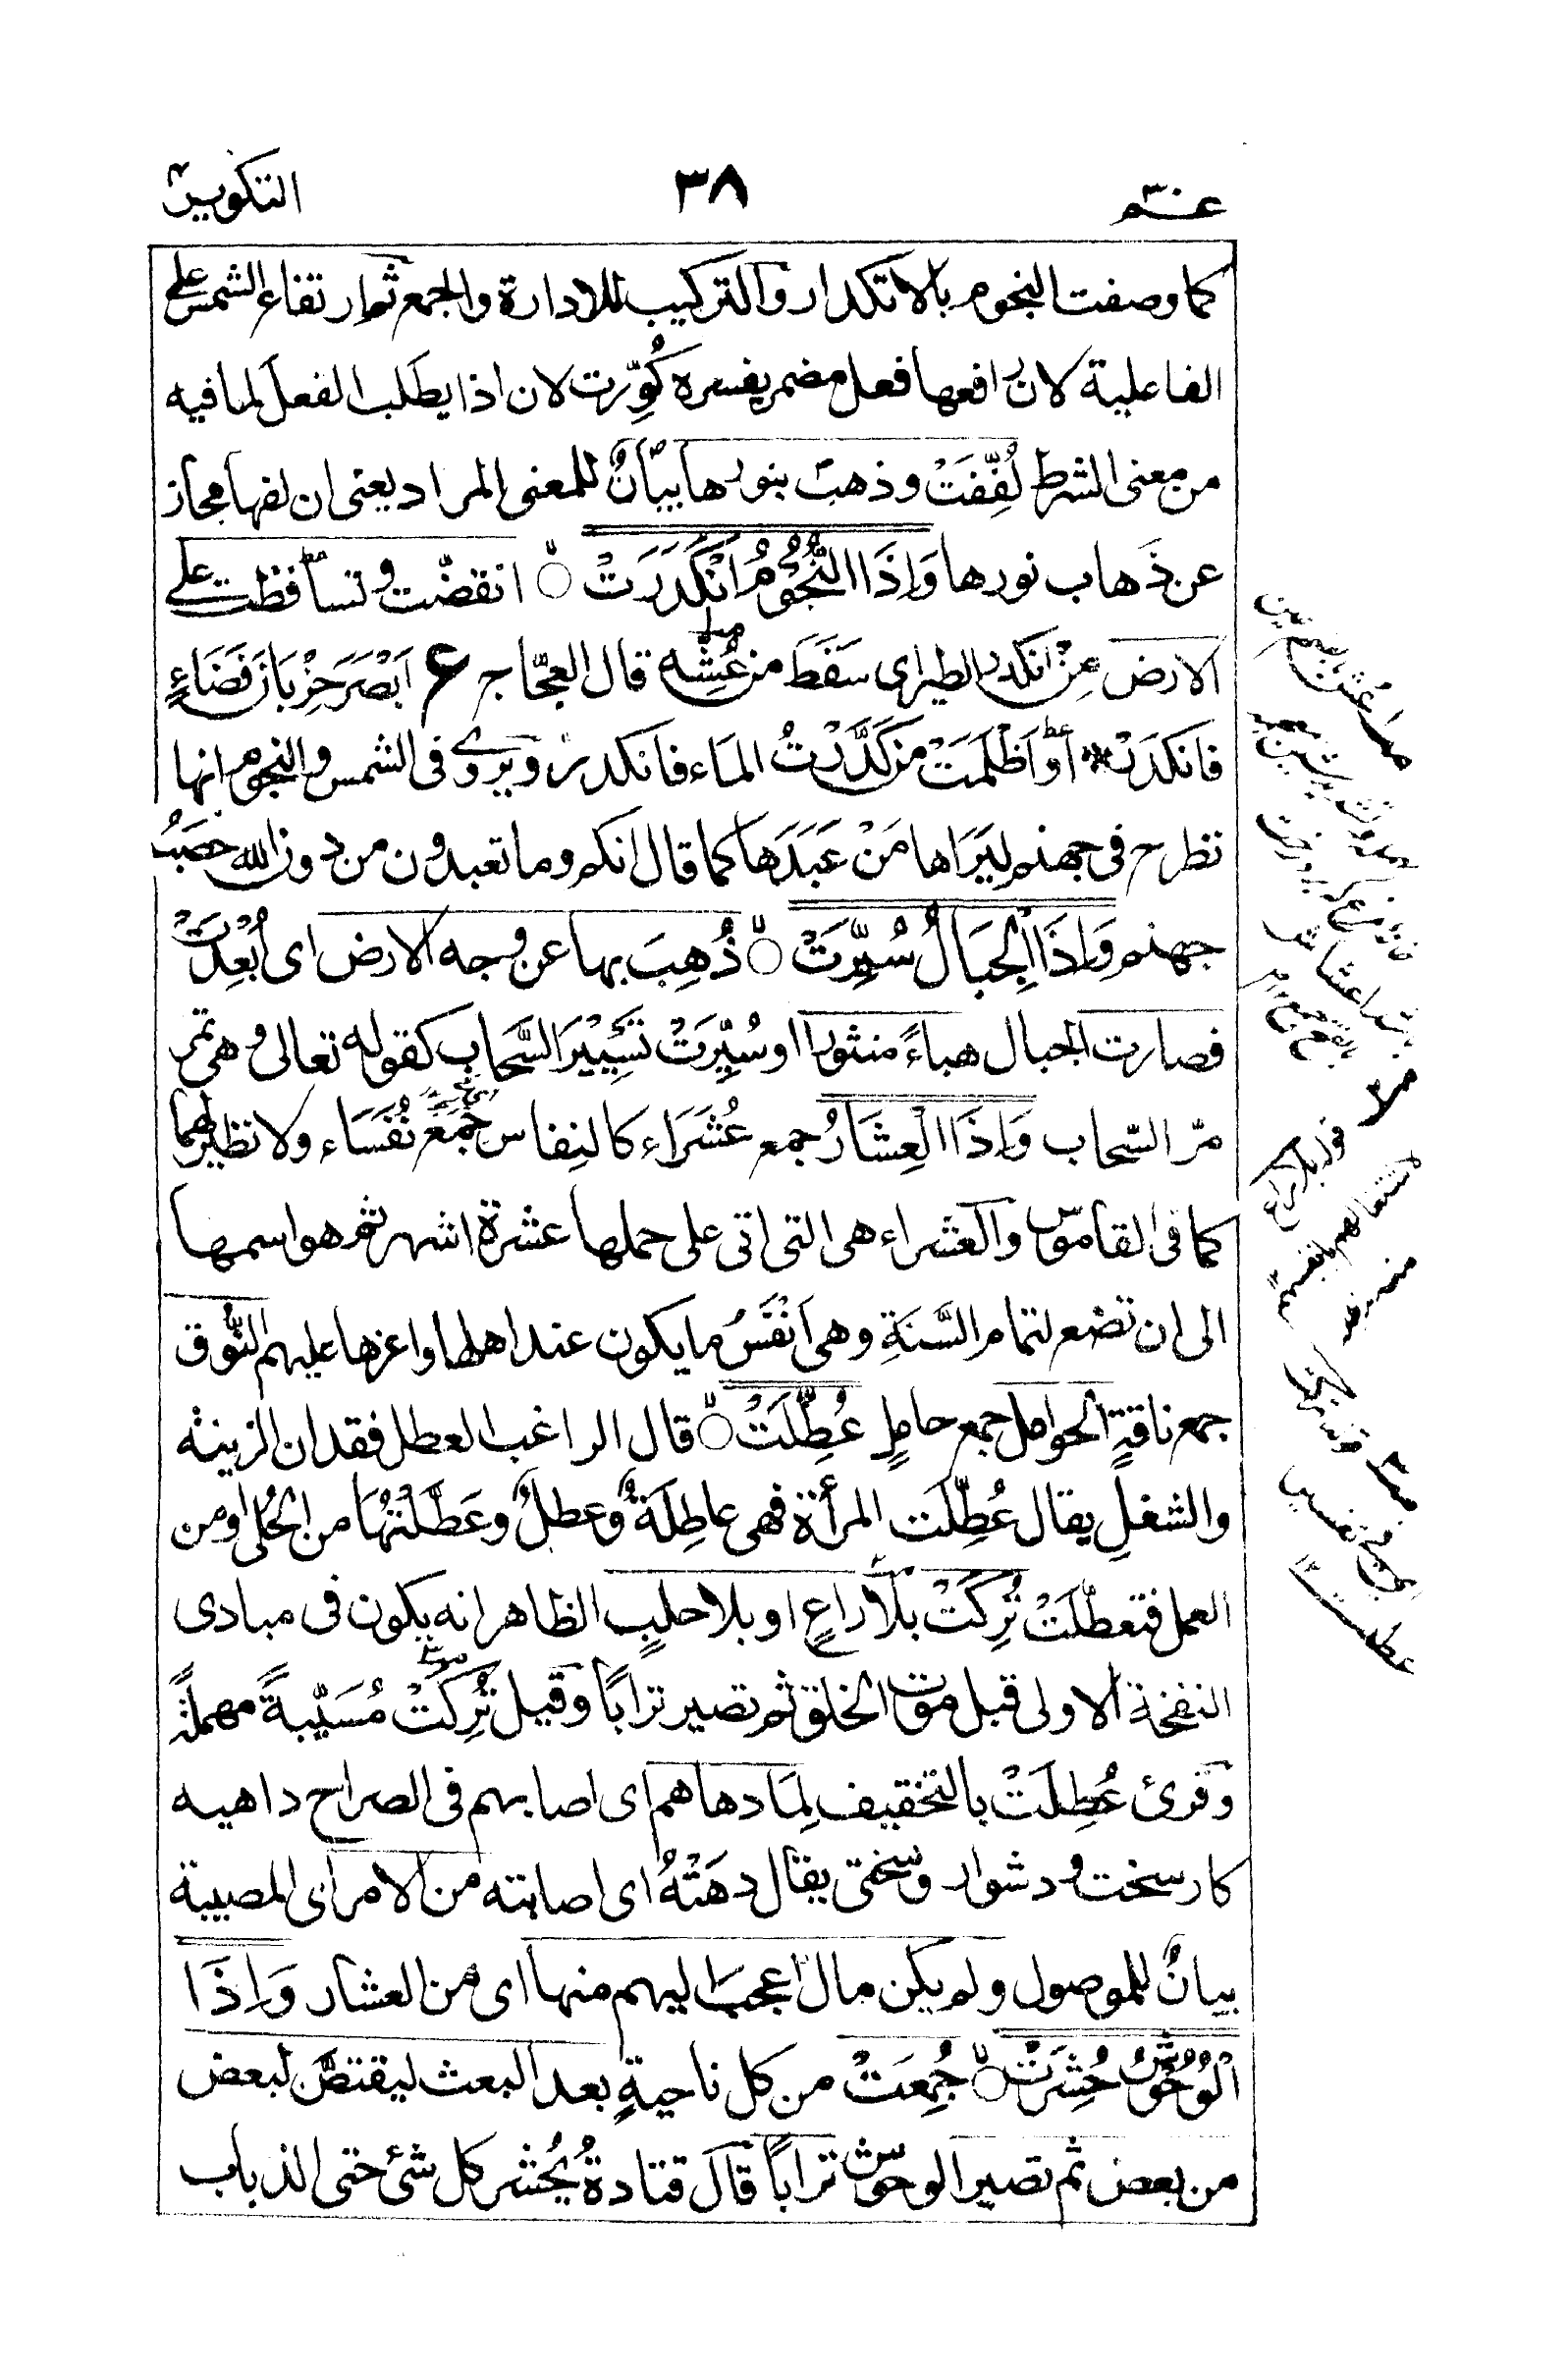 عم ٣٠
٣٨
التكوير
كما وصفت النجوم بالانكدار والتركيب للادارة والجمع ثم ارتفاع الشمس على
الفاعلية لان رافعها فعل مضمر يفسره كُوِّرت لان اذا يطلب الفعل لما فيه
من معنى الشرط لُفِّفَتْ وذهب بنورها بيانٌ للمعنى المراد يعنى ان لفها مجاز
عن ذَهاب نورها وَاِذَا النُّجُوْمُ انْكَدَرَتْ انقضّت وتساقطت على
الارض مِنْ انكدر الطير اى سَقَطَ من عُشِّه قال العجّاج ع اَبْصَرَ خِرْبَانَ فَضَاءٍ
فانكَدَرْ * اَوْ اَظْلَمَتْ من كَدَّرْتُ الماء فانكدر ويُرْوى فى الشمس والنجوم انها
تطرح فى جهنم ليَرَاها مَنْ عَبَدَها كما قال انكم وما تعبدون من دون الله حَصَبُ
جهنم وَاِذَا الْجِبَالُ سُيِّرَتْ ذُهِبَ بها عن وجه الارض اى اُبْعِدَتْ
فصارت الجبال هباءً منثورا او سُيِّرَتْ تَسْيِيْرَ السَّحاب كقوله تعالى وهى تمر
مرّ السّحاب وَاِذَا الْعِشَارُ جمع عُشَرَاء كالنِفاس جَمْعُ نُفَسَاء ولا نظير لهما
كما فى القاموس والعشراء هى التى اتى على حملها عشرة اشهر ثم هو اسمها
الى ان تضع لتمام السَّنَةِ وهى اَنْفَسُ ما يكون عند اهلها واعزها عليهم النُّوق
جمع ناقةٍ الحوامل جمع حاملٍ عُطِّلَتْ قال الراغب العطل فقدان الزينة
والشغلِ يقال عُطِّلَت المرأة فهى عاطِلَةٌ وعطلٌ وعَطَّلْتُهَا من الحُلى ومن
العمل فتعطّلَتْ تُرِكَتْ بلا راعٍ او بلا حلبٍ الظاهر انه يكون فى مبادى
النفخة الاولى قبل موت الخلق ثم تصير ترابًا وقيل تُرِكَتْ مُسَيَّبةً مهملةً
وقرئ عُطِلَتْ بالتخفيف لِمَا دهاهم اى اصابهم فى الصراح داهيه
كار سخت و دشوار و سختى يقال دهَتْهُ اى اصابته من الامر اى المصيبة
بيانٌ للموصول ولم يكن مال اعجب اليهم منها اى من العشار وَاِذَا
الْوُحُوْشُ حُشِرَتْ جُمِعَتْ من كل ناحيةٍ بعد البعث ليقتصّ لبعض
من بعض ثم تصير الوحوش ترابًا قال قتادة يُحشر كل شئ حتى الذباب